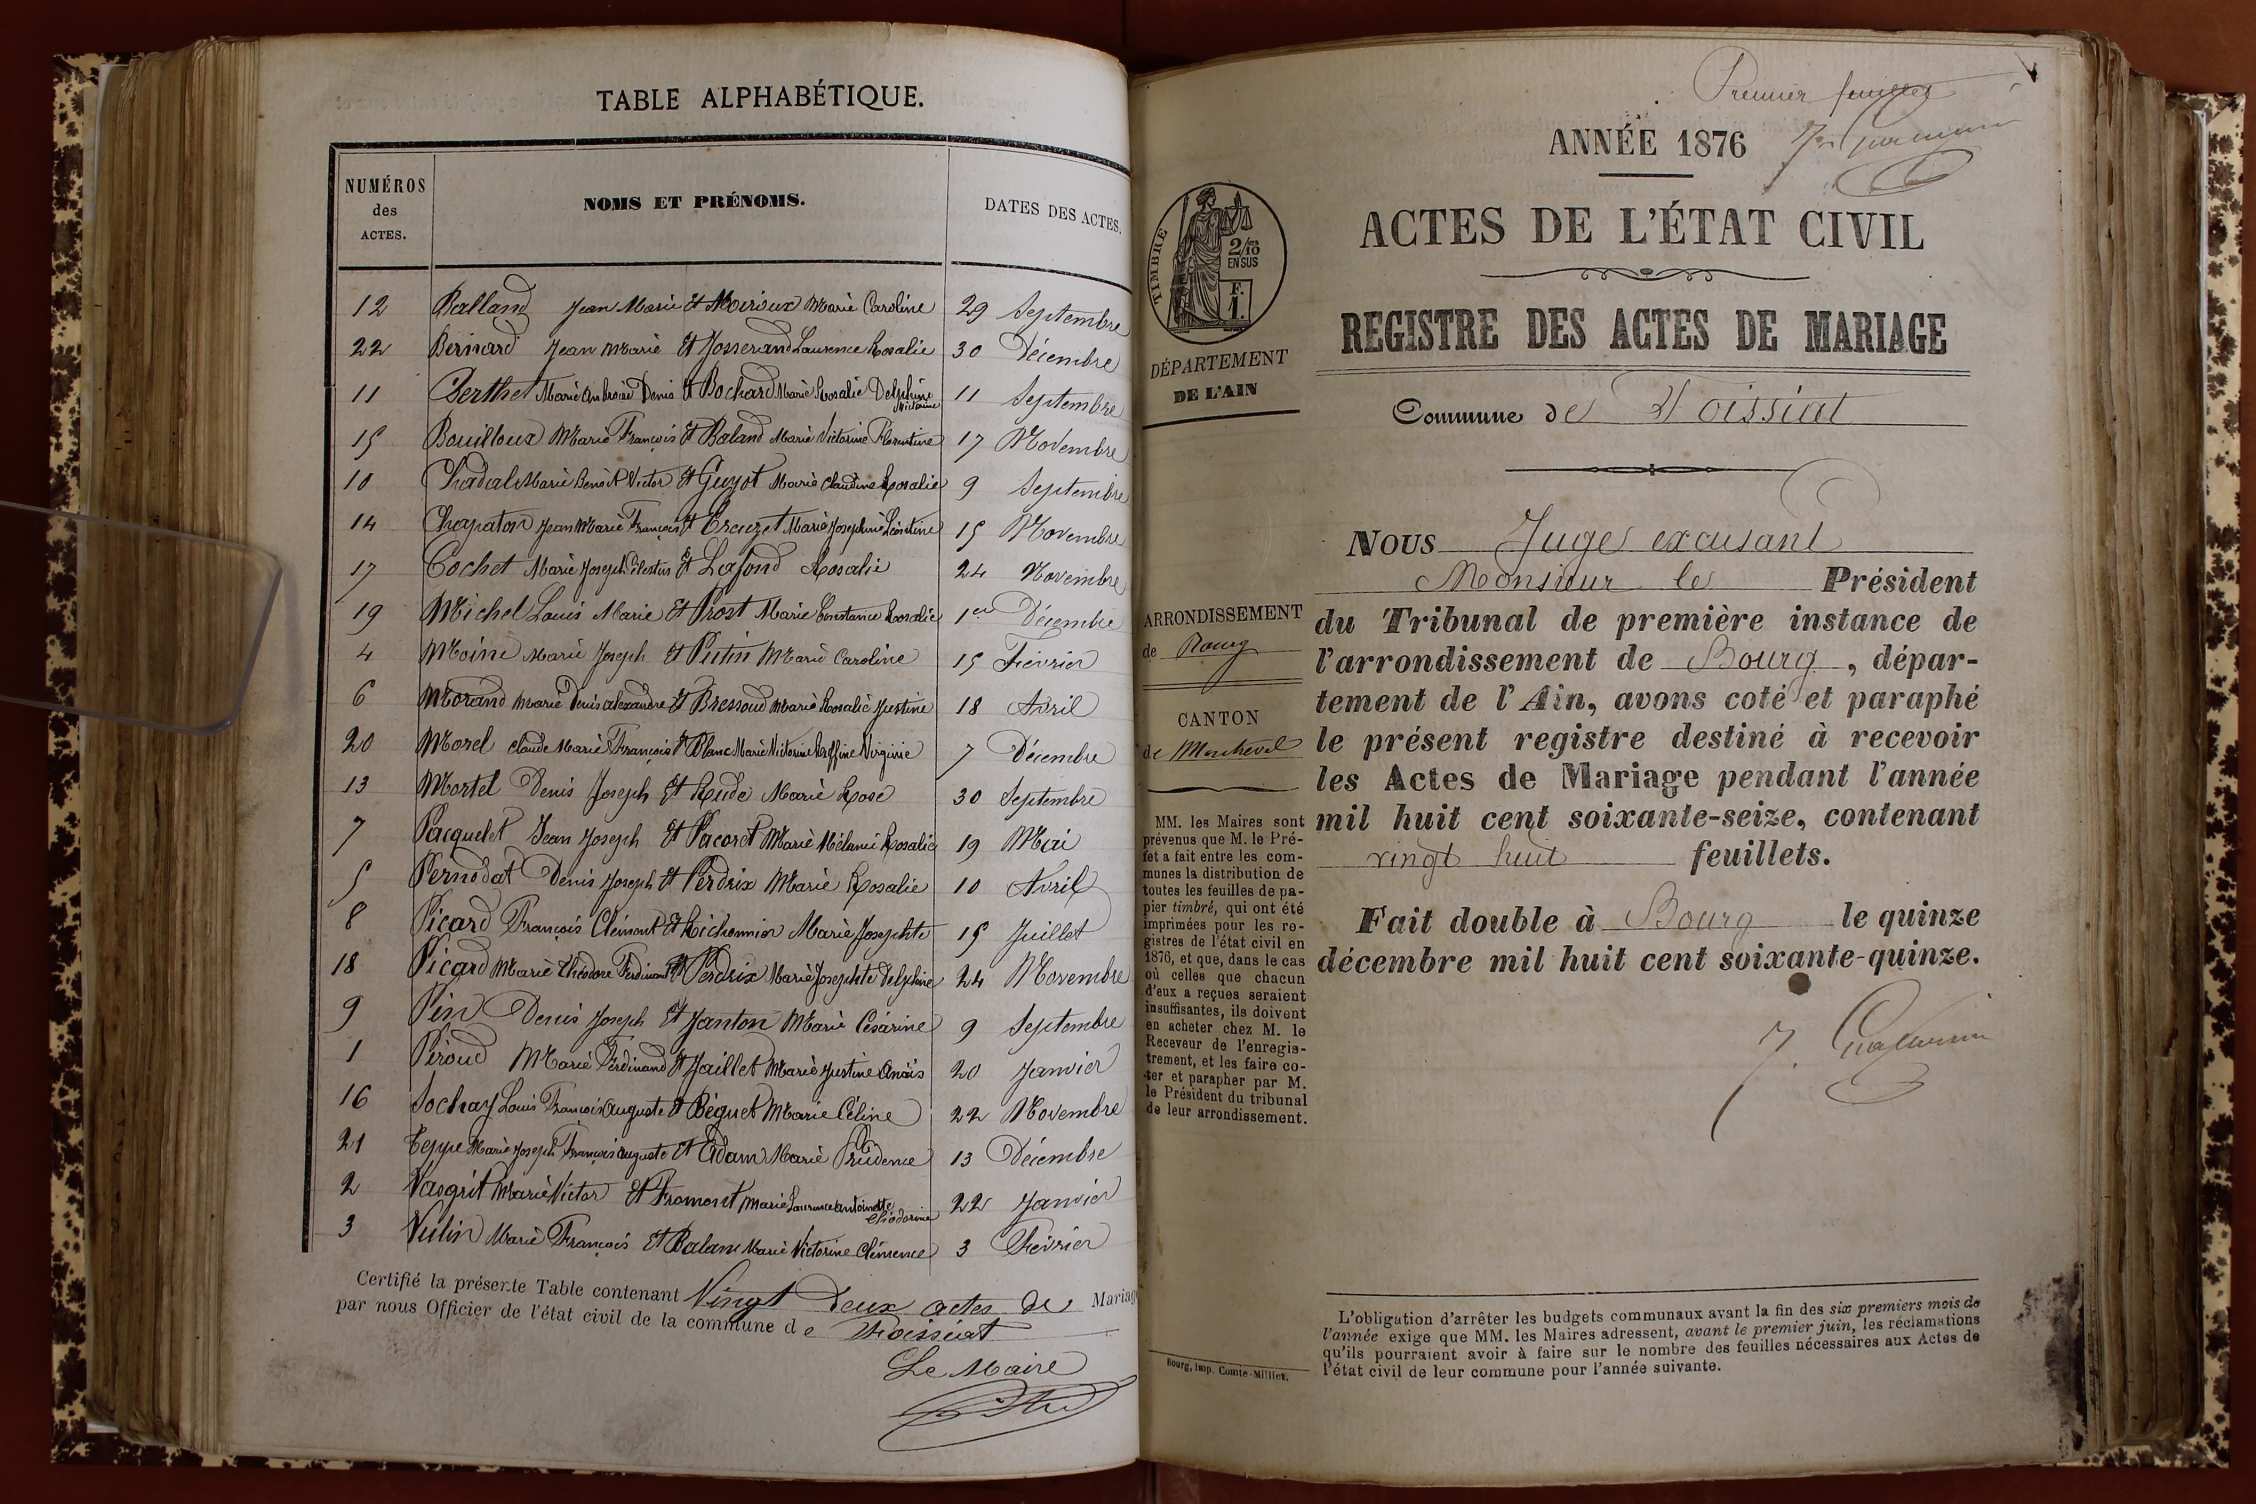 TABLE ALPHABÉTIQUE.
NUMÉROS des ACTES. NOMS ET PRÉNOMS. DATES DES ACTES.
12 Balland Jean Marie Et Moiroux Marie Caroline 29 Septembre
22 Bernard Jean Marie Et Josserand Laurence Rosalie 30 Décembre
11 Berthet Marie Ambroise Denis Et Bochard Marie Rosalie Delphine Victorine 11 Septembre
15 Bouilloux Marie François Et Baland Marie Victorine Florentine 17 Novembre
10 Chadal Marie Benoît Victor Et Guyot Marie Claudine Rosalie 9 Septembre
14 Chapaton Jean Marie François Et Creuzet Marie Joséphine Léontine 15 Novembre
17 Cochet Marie Joseph Célestin Et Lafond Rosalie 24 Novembre
19 Michel Louis Marie Et Prost Marie Constance Rosalie 1er Décembre
4 Moine Marie Joseph Et Putin Marie Caroline 15 Février
6 Morand Marie Denis Alexandre Et Bressoud Marie Rosalie Justine 18 Avril
20 Morel Claude Marie François Et Blanc Marie Victorine Virginie 7 Décembre
13 Mortel Denis Joseph Et Rude Marie Rose 30 Septembre
7 Pacquelet Jean Joseph Et Pacoret Marie Mélanie Rosalie 19 Mai
5 Pernodat Denis Joseph Et Perdrix Marie Rosalie 10 Avril
8 Picard François Clément Et Marie Josephte 15 Juillet
18 Picard Marie Théodore Ferdinand Et Perdrix Marie Josephte Delphine 24 Novembre
9 Pin Denis Joseph Et Janton Marie Césarine 9 Septembre
1 Piroud Marie Ferdinand Et Jaillet Marie Justine Anaïs 20 Janvier
16 Sochay Louis François Auguste Et Béguet Marie Céline 22 Novembre
21 Teppe Marie Joseph François Auguste Et Adam Marie Prudence 13 Décembre
2 Marie Victor Et Fromont Marie Laurence Antoinette 22 Janvier
3 Vulin Marie François Et Balam Marie Victorine Clémence 3 Février
Certifié la présente Table contenant Vingt Deux actes de Mariage
par nous Officier de l'état civil de la commune d e Foissiat
Le Maire
Premier feuillet
ANNÉE 1876
ACTES DE L'ÉTAT CIVIL
REGISTRE DES ACTES DE MARIAGE
Commune de Foissiat
TIMBRE
2/10
EN SUS
F.
1.
DÉPARTEMENT
DE L'AIN
ARRONDISSEMENT
de Bourg
CANTON
de Montrevel
MM. les Maires sont
prévenus que M. le Pré-
fet a fait entre les com-
munes la distribution de
toutes les feuilles de pa-
pier timbré, qui ont été
imprimées pour les re-
gistres de l'état civil en
1876, et que, dans le cas
où celles que chacun
d'eux a reçues seraient
insuffisantes, ils doivent
en acheter chez M. le
Receveur de l'enregis-
trement, et les faire co-
ter et parapher par M.
le Président du tribunal
de leur arrondissement.
Bourg, Imp. Comte-Milliet.
NOUS Juge excusant
Monsieur le Président
du Tribunal de première instance de
l'arrondissement de Bourg, dépar-
tement de l'Ain, avons coté et paraphé
le présent registre destiné à recevoir
les Actes de Mariage pendant l'année
mil huit cent soixante-seize, contenant
vingt huit feuillets.
Fait double à Bourg le quinze
décembre mil huit cent soixante-quinze.
L'obligation d'arrêter les budgets communaux avant la fin des six premiers mois de
l'année exige que MM. les Maires adressent, avant le premier juin, les réclamations
qu'ils pourraient avoir à faire sur le nombre des feuilles nécessaires aux Actes de
l'état civil de leur commune pour l'année suivante.